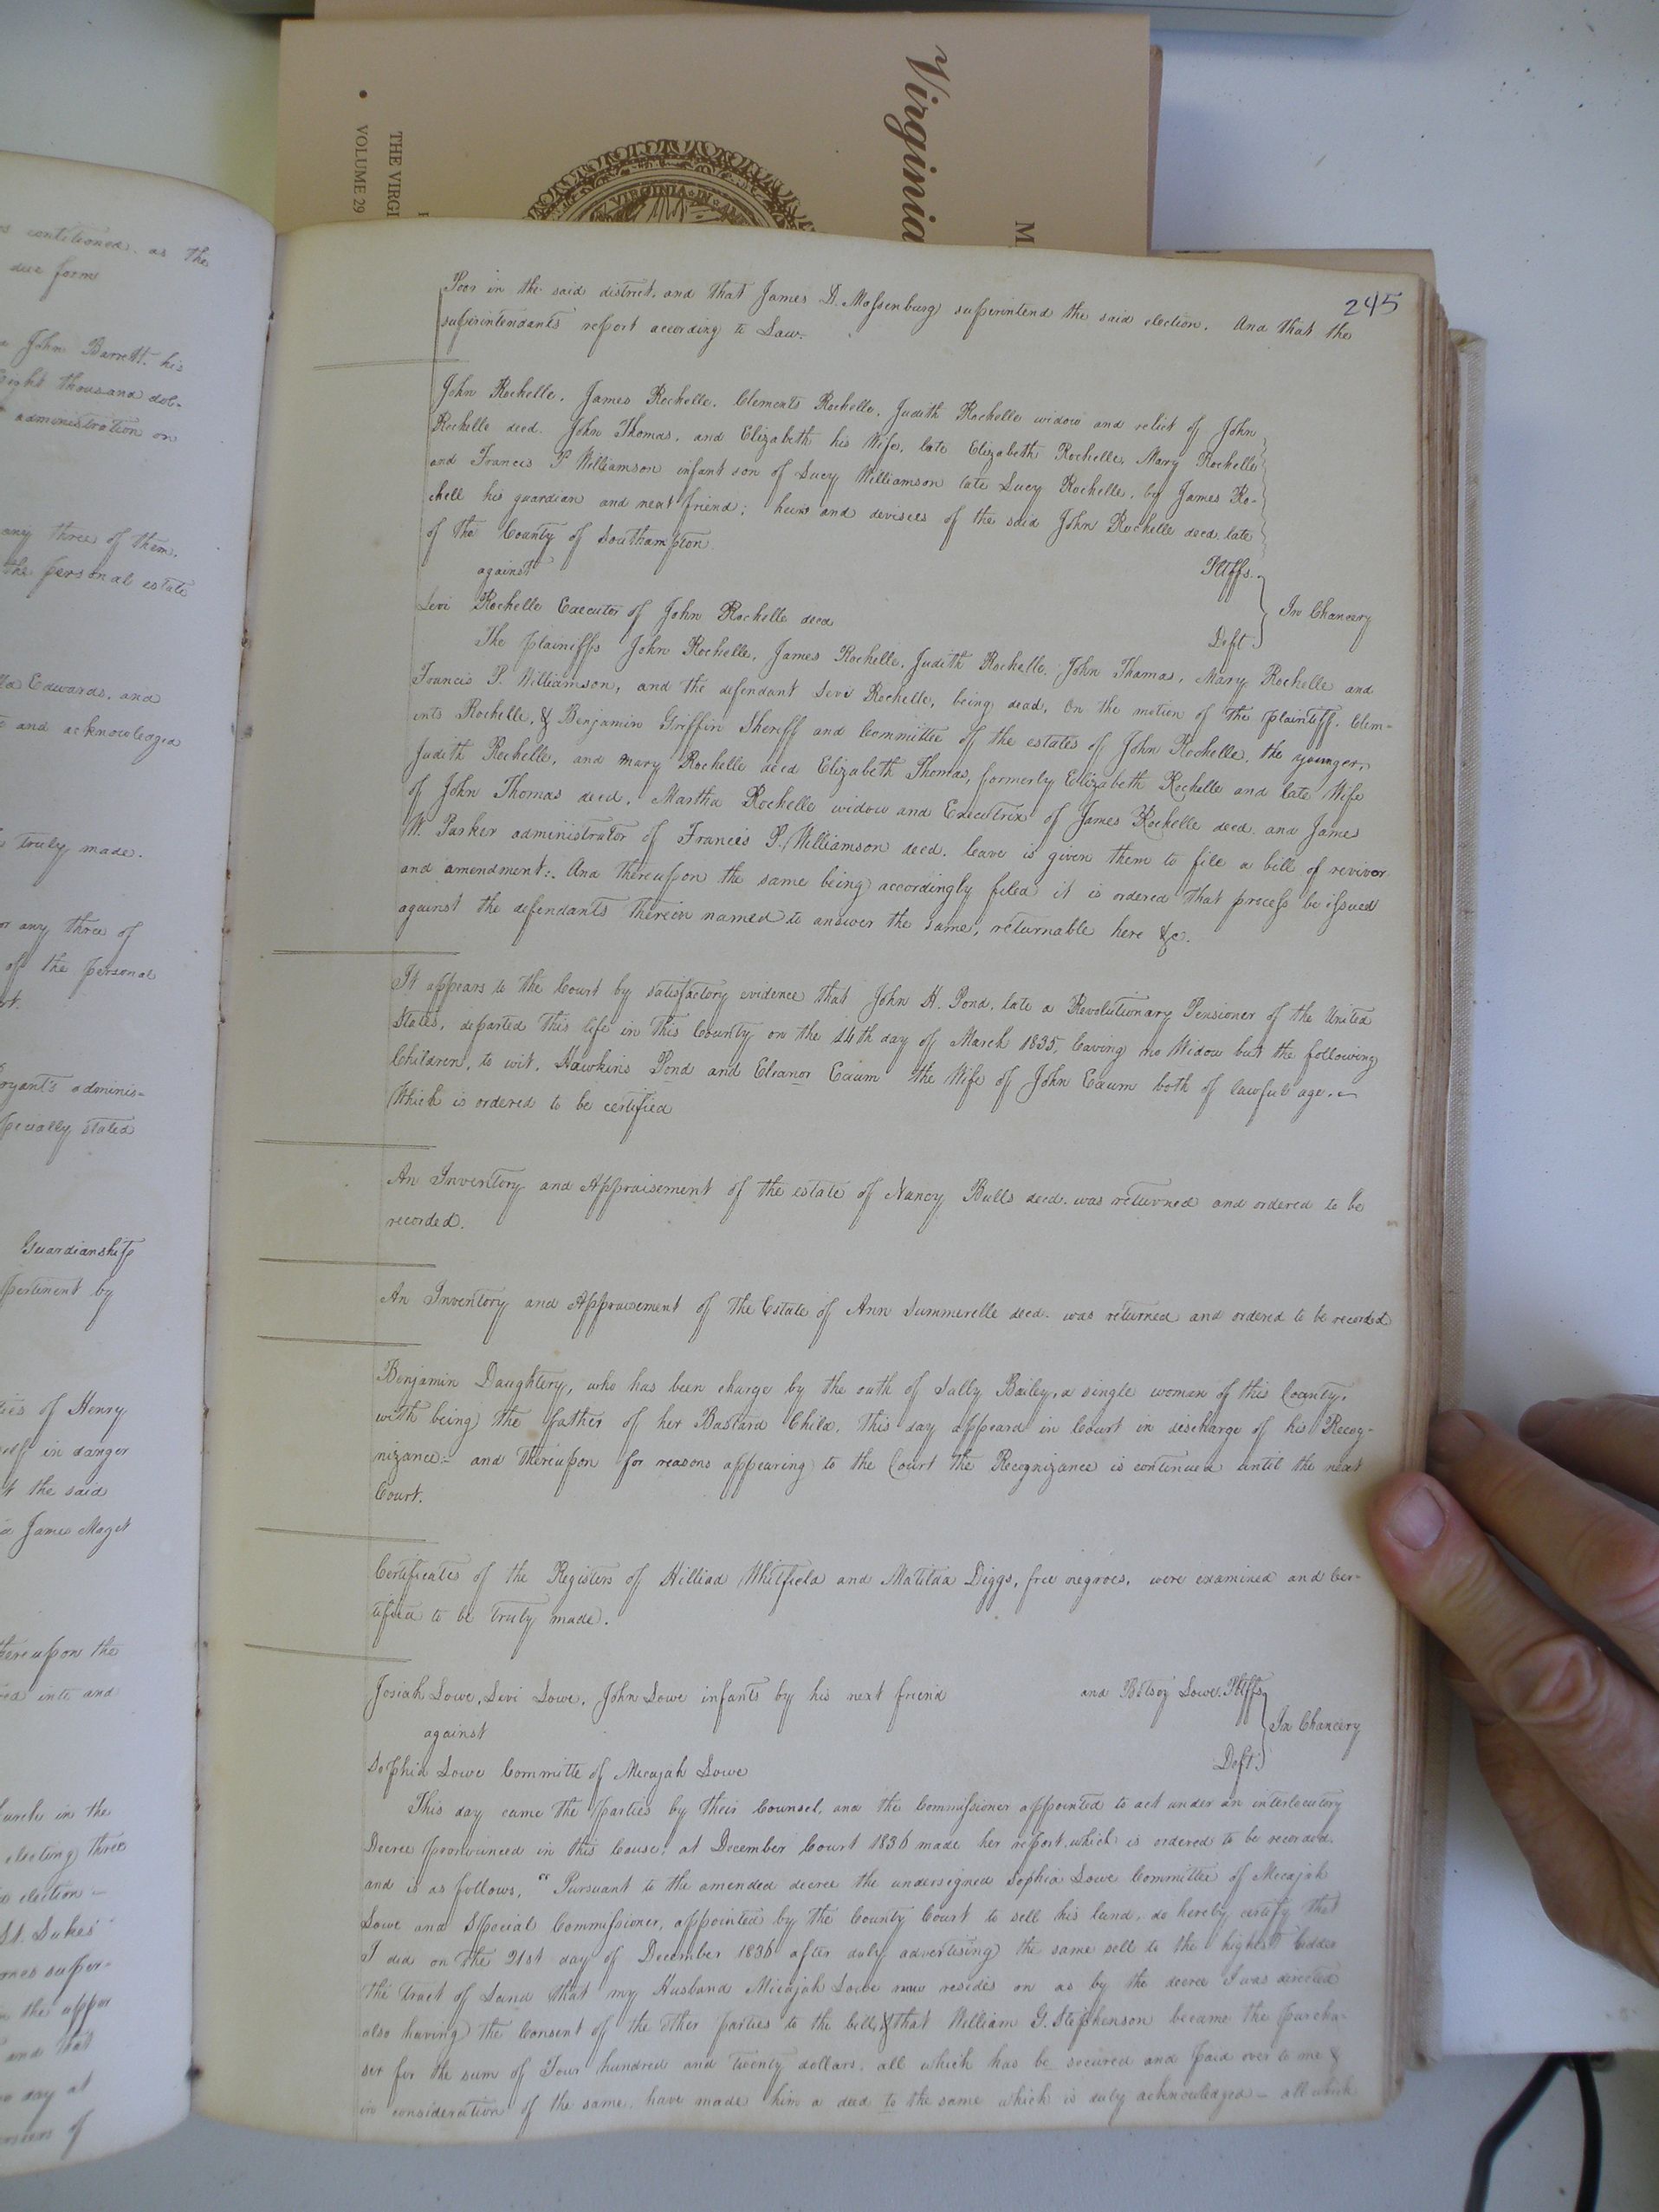 Virginia
M
THE VIRGI
VOLUME 29
VIRGINIA IN
contitioned. as the
due form
John Barrett. his
Eight thousand dol-
administration on
any three of them.
the personal estate
Edwards, and
and acknowledged
truly made.
or any three of
of the personal
Bryant's adminis-
specially stated
Guardianship
pertinent by
of Henry
self in danger
the said
James Maget
thereupon the
into and
in the
electing three
election -
St. Lukes
super-
the upper
and that
day at
of
245
Poor in the said district, and that James D. Massenburg superintend the said election. And that the
superintendants report according to Law.
John Rochelle, James Rochelle, Clements Rochelle, Judith Rochelle widow and relict of John
Rochelle decd. John Thomas, and Elizabeth his Wife, late Elizabeth Rochelle, Mary Rochelle
and Francis P Williamson infant son of Lucy Williamson late Lucy Rochelle, by James Ro-
chell his guardian and next friend; heirs and devisees of the said John Rochelle decd late
of the County of Southampton
Pltffs.
against
In Chancery
Levi Rochelle Executor of John Rochelle decd
Deft.
The plaintiffs John Rochelle, James Rochelle, Judith Rochelle, John Thomas, Mary Rochelle and
Francis P. Williamson, and the defendant Levi Rochelle, being dead, On the motion of the plaintiff. Clem-
ents Rochelle, & Benjamin Griffin Sheriff and Committee of the estates of John Rochelle, the younger,
Judith Rochelle, and Mary Rochelle decd Elizabeth Thomas, formerly Elizabeth Rochelle and late Wife
of John Thomas decd, Martha Rochelle widow and Executrix of James Rochelle decd. and James
W. Parker administrator of Francis P. Williamson decd. leave is given them to file a bill of revivor
and amendment:. And thereupon the same being accordingly filed it is ordered that process be issued
against the defendants therein named to answer the same, returnable here &c.
It appears to the Court by satisfactory evidence that John H. Pond, late a Revolutionary Pensioner of the United
States, departed this life in this County on the 24th day of March 1835, leaving no Widow but the following
Children, to wit, Hawkins Pond and Eleanor Exum the Wife of John Exum both of lawful age.
Which is ordered to be certified
An Inventory and Appraisement of the estate of Nancy Bulls decd. was returned and ordered to be
recorded.
An Inventory and Appraisement of the Estate of Ann Summerelle decd. was returned and ordered to be recorded
Benjamin Daughtery, who has been charge by the oath of Sally Bailey, a single woman of this County,
with being the father of her Bastard Child, this day appeard in Court in discharge of his Recog-
nizance:- and thereupon for reasons appearing to the Court the Recognizance is continued until the next
Court.
Certificates of the Registers of Hilliad Whitfield and Matilda Diggs, free negroes, were examined and Cer-
tified to be truly made.
Josiah Lowe, Levi Lowe, John Lowe infants by his next friend and Betsey Lowe. Pltffs
against
In Chancery
Sophia Lowe Committe of Micajah Lowe
Deft.
This day came the parties by their Counsel, and the Commissioner appointed to act under an interlocutory
Decree pronounced in this Cause, at December Court 1836 made her report, which is ordered to be recorded.
and is as follows, "Pursuant to the amended decree the undersigned Sophia Lowe Committee of Micajah
Lowe and Special Commissioner, appointed by the County Court to sell his land, do hereby certify that
I did on the 21st day of December 1836 after duly advertising the same sell to the highest bidder
the tract of Land that my Husband Micajah Lowe now resides on as by the decree I was directed
also having the Consent of the other parties to the bill, & that William G. Stephenson became the purcha-
ser for the sum of Four hundred and twenty dollars. all which has be secured and paid over to me &
in consideration of the same, have made him a deed to the same which is duly acknowledged - all which